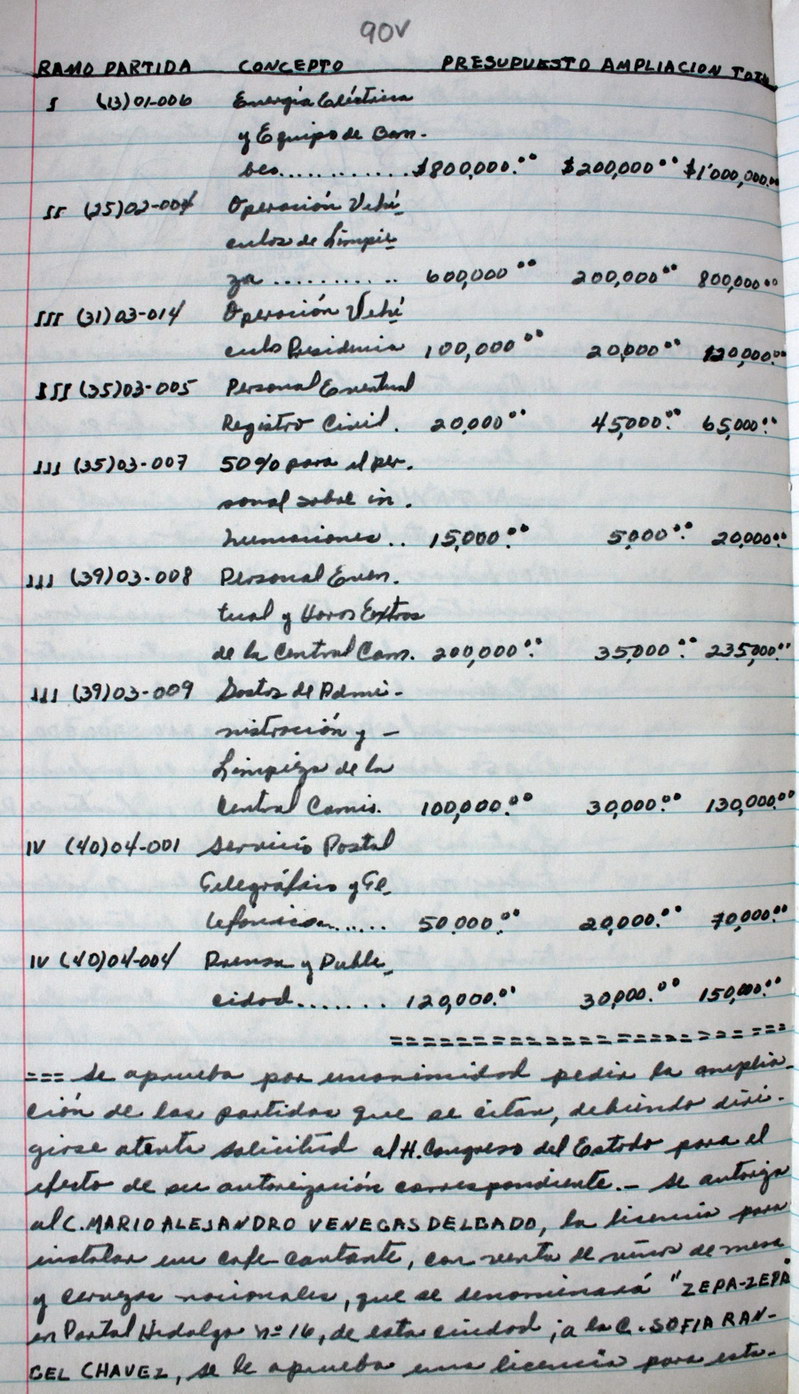 90v
RAMO PARTIDA CONCEPTO PRESUPUESTO AMPLIACION TOTAL
I (13)01-006 Energía Eléctrica
y Equipo de Bom-
beo............ $800,000.00 $200,000.00 $1'000,000.00
II (25)02-004 Operación Vehí
culos de Limpie
za .......... 600,000.00 200,000.00 800,000.00
III (31)03-014 Operación Vehí
culo Presidencia 100,000.00 20,000.00 120,000.00
III (35)03-005 Personal Eventual
Registro Civil. 20,000.00 45,000.00 65,000.00
III (35)03-007 50% para el per-
sonal sobre in-
humaciones.. 15,000.00 5,000.00 20,000.00
III (39)03-008 Personal Even-
tual y Horas Extras
de la Central Cam. 200,000.00 35,000.00 235,000.00
III (39)03-009 Gastos de Admi-
nistración y -
Limpieza de la
Central Camio. 100,000.00 30,000.00 130,000.00
IV (40)04-001 Servicio Postal
Telegráfico y Te-
lefónico...... 50,000.00 20,000.00 70,000.00
IV (40)04-004 Prensa y Publi-
cidad....... 120,000.00 30,000.00 150,000.00
==========================
=== Se aprueba por unanimidad pedir la amplia-
ción de las partidas que se citan, debiendo diri-
girse atenta solicitud al H. Congreso del Estado para el
efecto de su autorización correspondiente.- Se autoriza
al C. MARIO ALEJANDRO VENEGAS DELGADO, la licencia para
instalar un cafe cantante, con venta de vinos de mesa
y cervezas nacionales, que se denominará "ZEPA-ZEPA"
en Portal Hidalgo nº 16, de esta ciudad; a la C. SOFIA RAN-
GEL CHAVEZ, se le aprueba una licencia para esta-